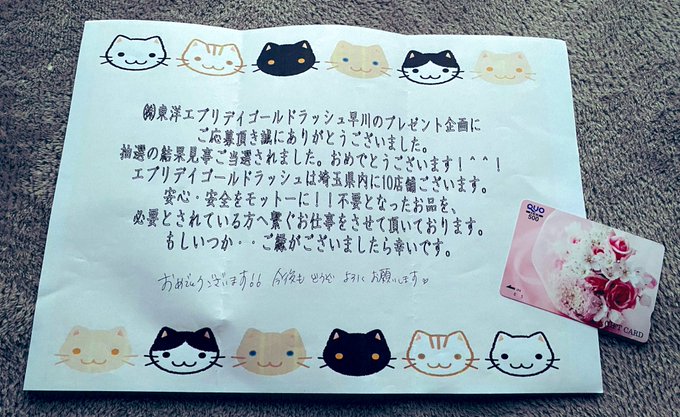 ㈱東洋エブリデイゴールドラッシュ早川のプレゼント企画に
ご応募頂き誠にありがとうございました。
抽選の結果見事ご当選されました。おめでとうございます！^^！
エブリデイゴールドラッシュは埼玉県内に10店舗ございます。
安心・安全をモットーに！！不要となったお品を、
必要とされている方へ繋ぐお仕事をさせて頂いております。
もしいつか・・ご縁がございましたら幸いです。
おめでとうございます!! 今後も どうぞ よろしくお願いします♡
QUO
500
GIFT CARD